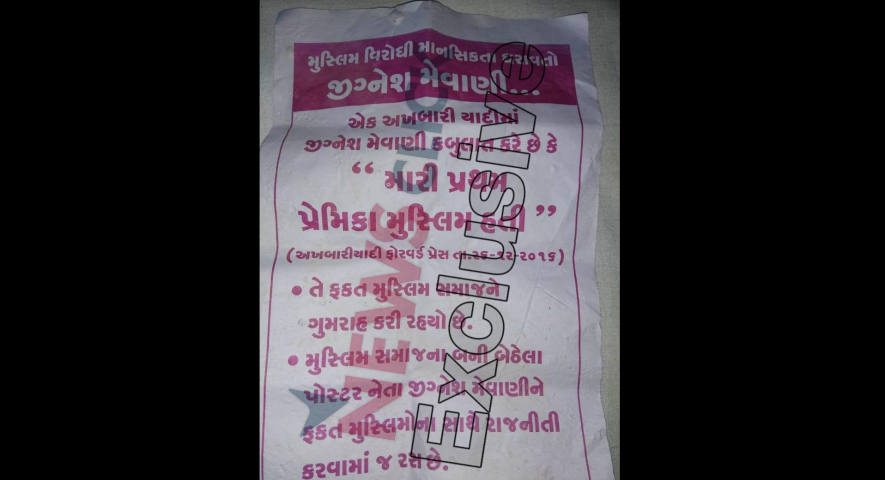 મુસ્લિમ વિરોધી માનસિકતા ધરાવતો
જીગ્નેશ મેવાણી...
એક અખબારી યાદીમાં
જીગ્નેશ મેવાણી કબુલાત કરે છે કે
“ મારી પ્રથમ
પ્રેમિકા મુસ્લિમ હતી ”
(અખબારીયાદી ફોરવર્ડ પ્રેસ તા.૨૬-૧૨-૨૦૧૬)
• તે ફકત મુસ્લિમ સમાજને
ગુમરાહ કરી રહયો છે.
• મુસ્લિમ સમાજના બની બેઠેલા
પોસ્ટર નેતા જીગ્નેશ મેવાણીને
ફકત મુસ્લિમોના સાથે રાજનીતી
કરવામાં જ રસ છે.
NEWSCLICK
Exclusive